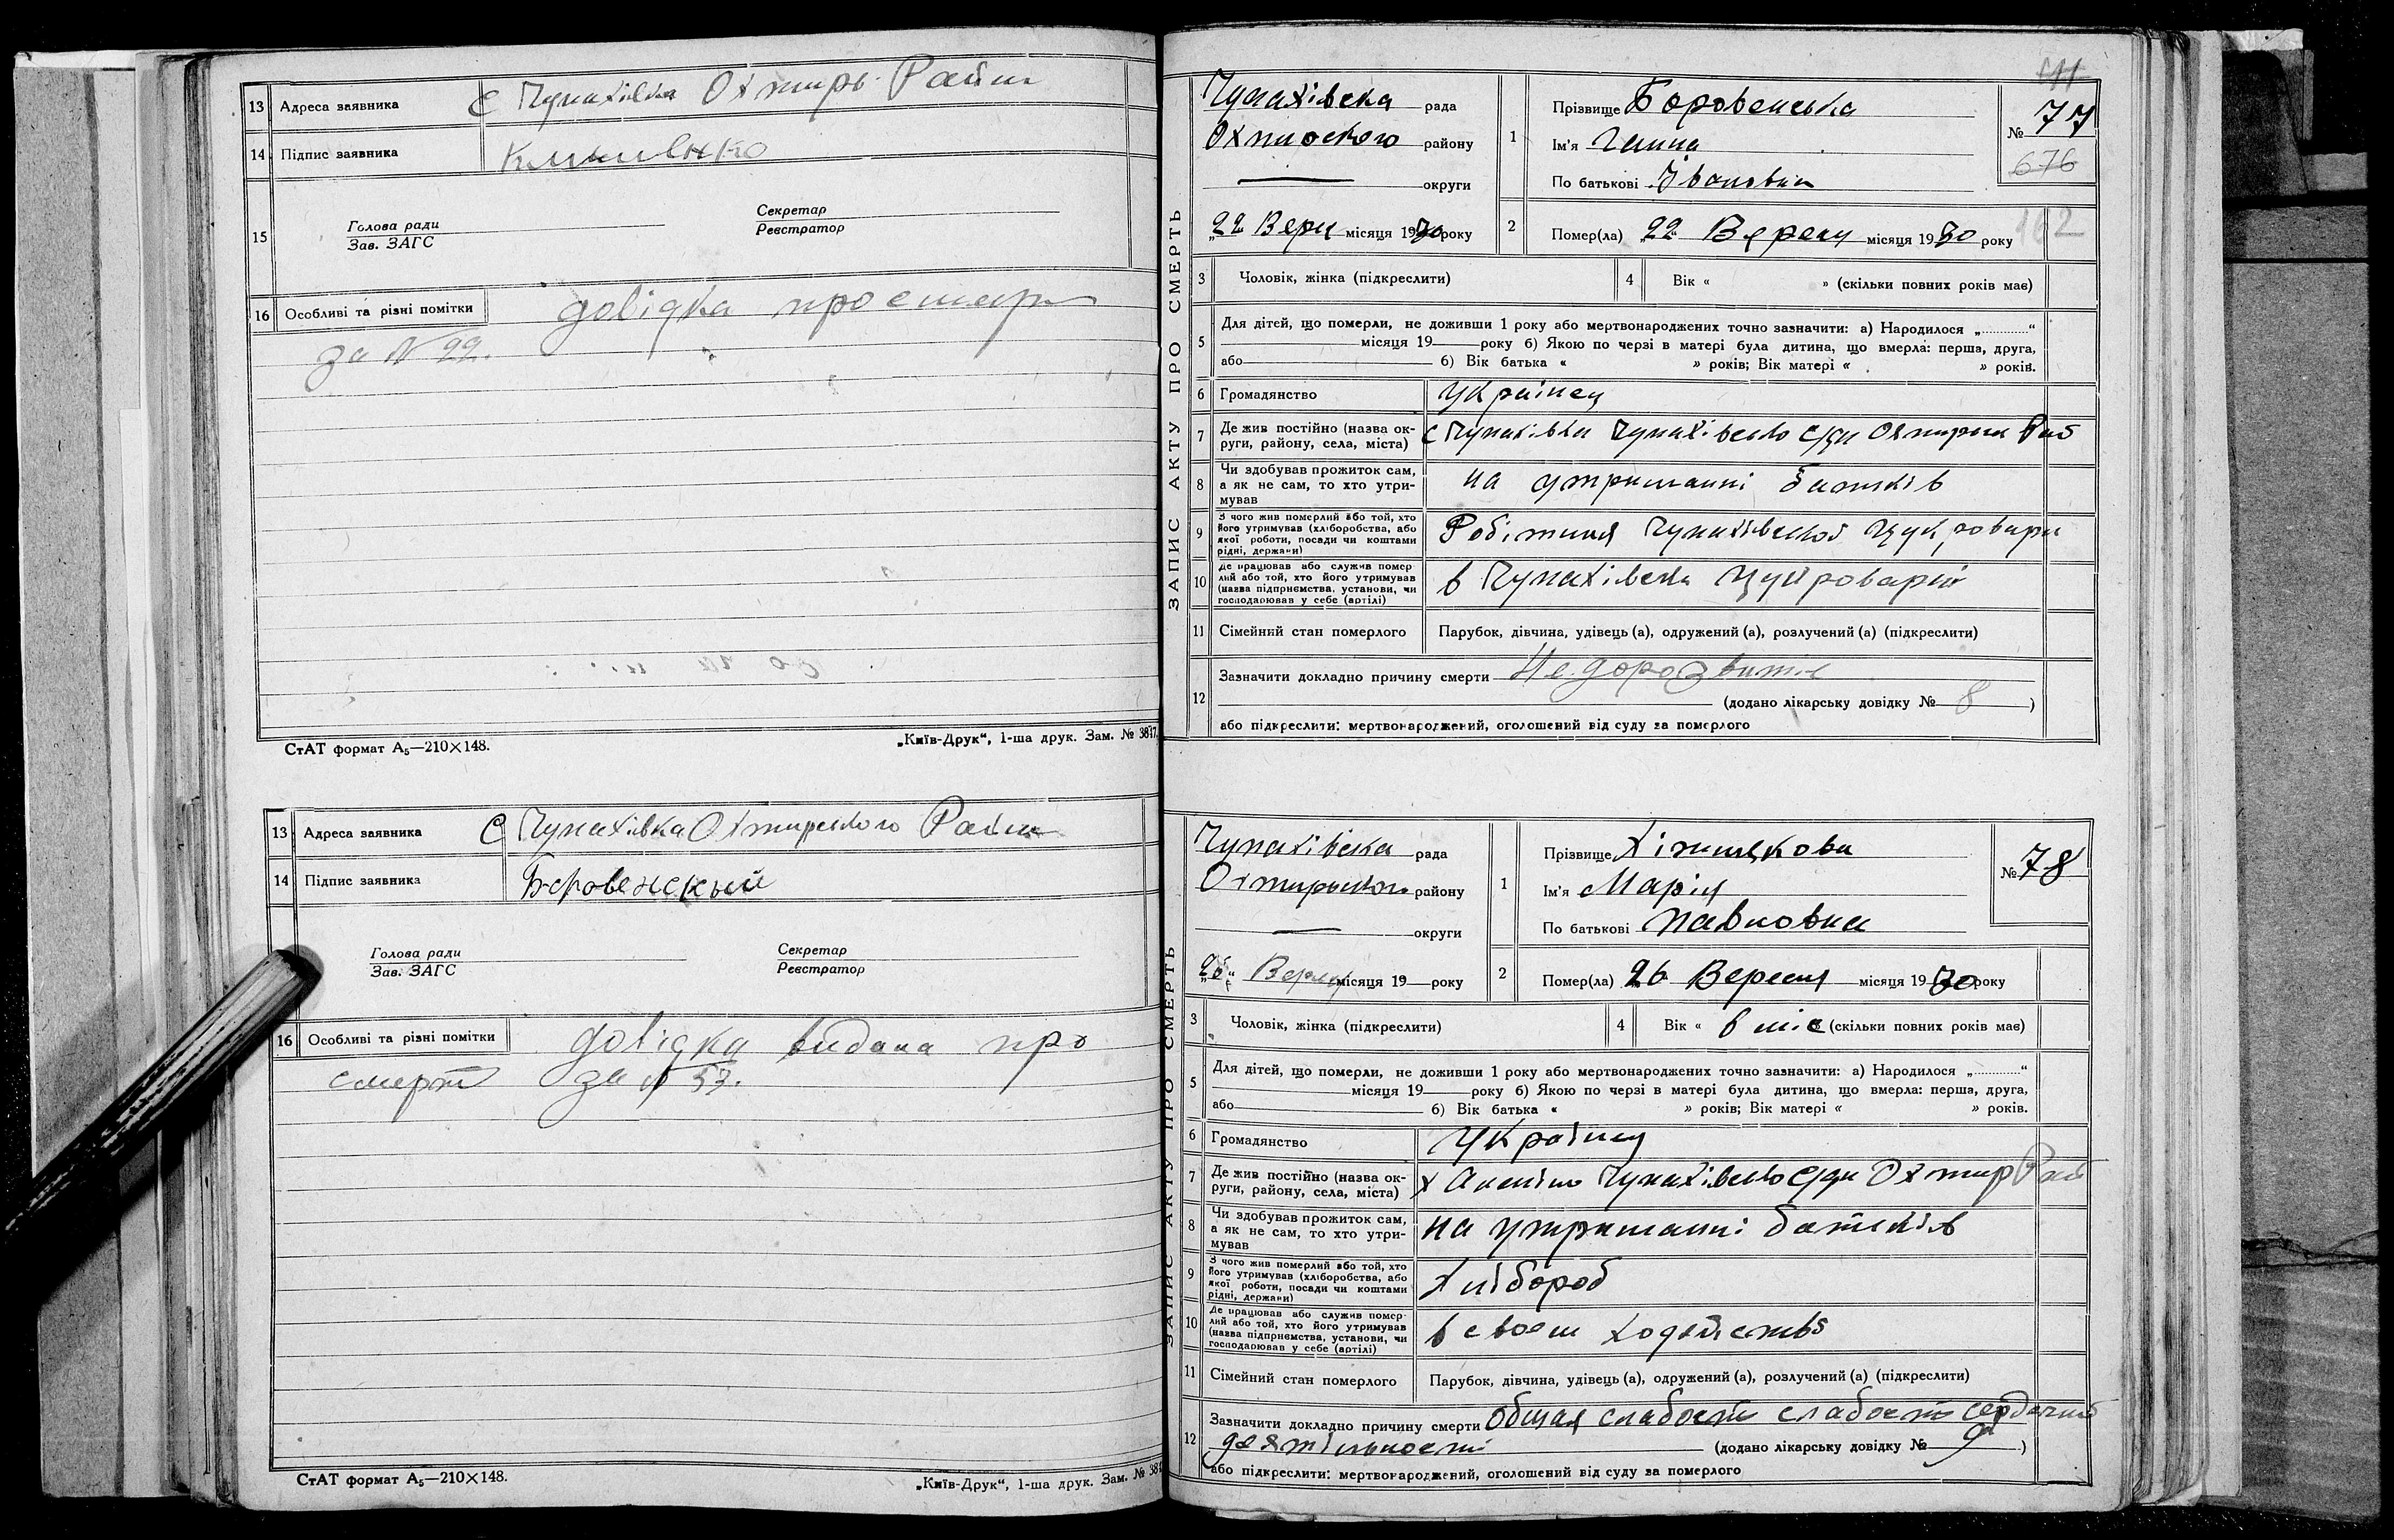 13 Адреса заявника с Чупахівка Охтирь Район
14 Підпис заявника
15 Голова ради
Зав. ЗАГС
Секретар
Реєстратор
16 Особливі та різні помітки довідка про смерт
за № 22.
СтАТ формат А₅—210×148.
„Київ-Друк“, 1-ша друк. Зам. № 3847.
13 Адреса заявника с Чупахівка Охтирського Район
14 Підпис заявника Боровенський
15 Голова ради
Зав. ЗАГС
Секретар
Реєстратор
16 Особливі та різні помітки довідка видана про
смерт за № 57.
СтАТ формат А₅—210×148.
„Київ-Друк“, 1-ша друк. Зам. № 384
ЗАПИС АКТУ ПРО СМЕРТЬ
Чупахівська рада
Охтирського району
округи
„22 Верес місяця 1930 року
1 Прізвище Боровенська
Ім'я Ганна
По батькові Івановна
№ 77
676
2 Помер(ла) „22 Вересня місяця 1930 року
162
3 Чоловік, жінка (підкреслити)
4 Вік « » (скільки повних років має)
5 Для дітей, що померли, не доживши 1 року або мертвонароджених точно зазначити: а) Народилося „..........“
місяця 19 року б) Якою по черзі в матері була дитина, що вмерла: перша, друга,
або б) Вік батька « » років; Вік матері « » років.
6 Громадянство Українец
7 Де жив постійно (назва ок-
руги, району, села, міста) с Чупахівка Чупахівсько с/ради Охтирськ Рай
8 Чи здобував прожиток сам,
а як не сам, то хто утри-
мував на утриманні батьків
9 З чого жив померлий або той, хто
його утримував (хліборобства, або
якої роботи, посади чи коштами
рідні, держави) Робітник Чупахівської Цукроварн
10 Де працював або служив помер-
лий або той, хто його утримував
(назва підприємства, установи, чи
господарював у себе (артілі) в Чупахівська Цукроварні
11 Сімейний стан померлого Парубок, дівчина, удівець (а), одружений (а), розлучений (а) (підкреслити)
12 Зазначити докладно причину смерти Недорозвитие
(додано лікарську довідку № 8 )
або підкреслити: мертвонароджений, оголошений від суду за померлого
ЗАПИС АКТУ ПРО СМЕРТЬ
Чупахівська рада
Охтирського району
округи
„26“ Вересня місяця 19 року
1 Прізвище
Ім'я Марія
По батькові Павловна
№ 78
2 Помер(ла) 26 Вересня місяця 1930 року
3 Чоловік, жінка (підкреслити)
4 Вік « 6 міс (скільки повних років має)
5 Для дітей, що померли, не доживши 1 року або мертвонароджених точно зазначити: а) Народилося „..........“
місяця 19 року б) Якою по черзі в матері була дитина, що вмерла: перша, друга,
або б) Вік батька « » років; Вік матері « » років.
6 Громадянство Українец
7 Де жив постійно (назва ок-
руги, району, села, міста) х Чупахівсько с/ради Охтир Рай
8 Чи здобував прожиток сам,
а як не сам, то хто утри-
мував на утриманні батьків
9 З чого жив померлий або той, хто
його утримував (хліборобства, або
якої роботи, посади чи коштами
рідні, держави) Хлібороб
10 Де працював або служив помер-
лий або той, хто його утримував
(назва підприємства, установи, чи
господарював у себе (артілі) в своем ходяйстві
11 Сімейний стан померлого Парубок, дівчина, удівець (а), одружений (а), розлучений (а) (підкреслити)
12 Зазначити докладно причину смерти общая слабост слабост сердечний
деятільности (додано лікарську довідку № 9 )
або підкреслити: мертвонароджений, оголошений від суду за померлого